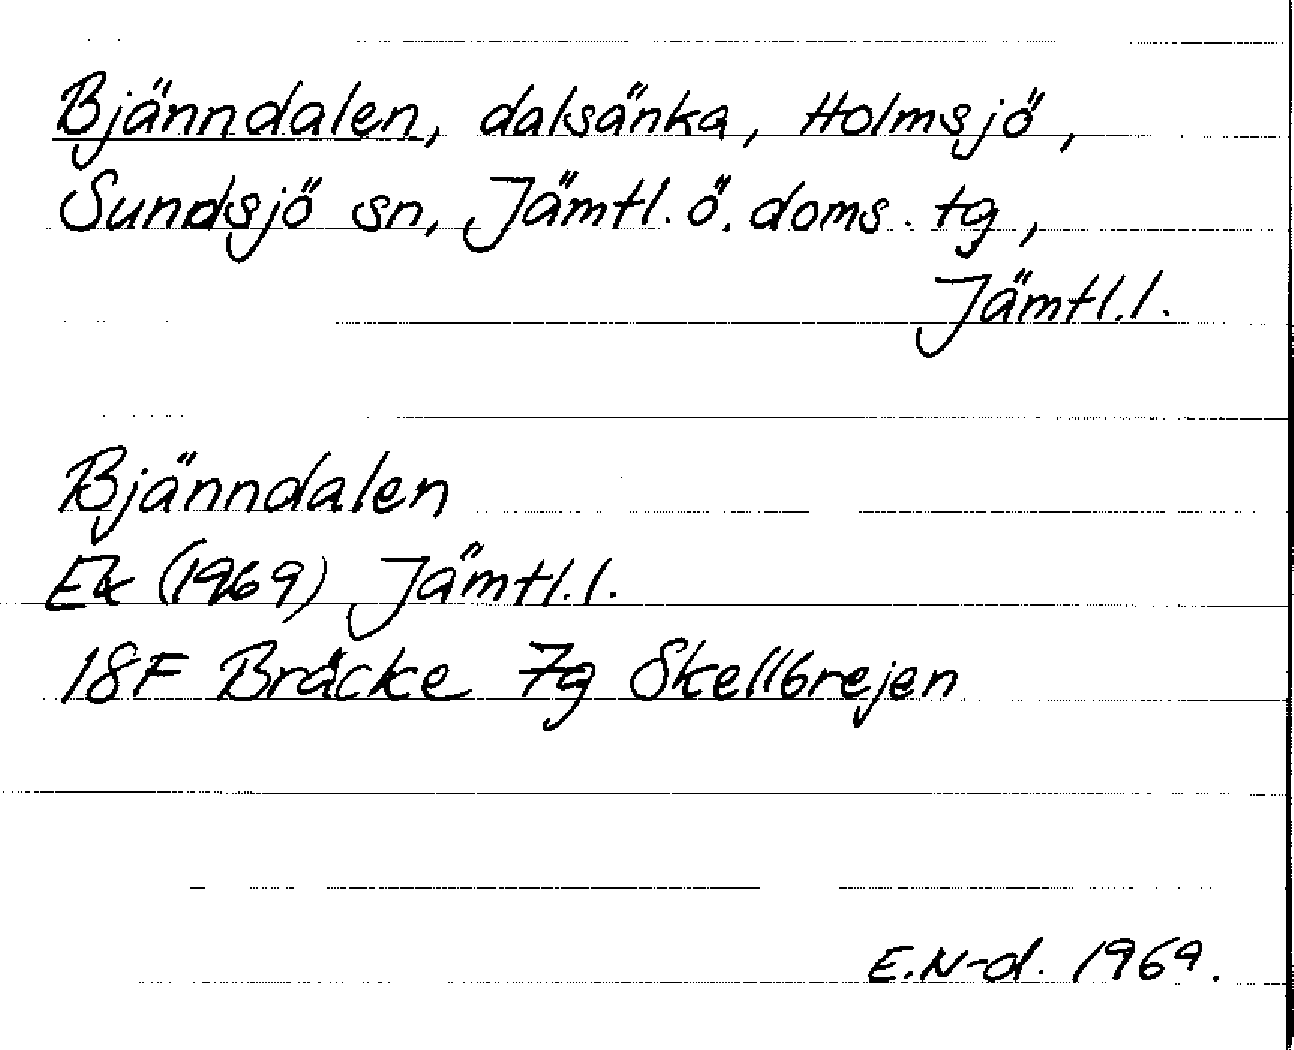 Bjänndalen, dalsänka, Holmsjö,
Sundsjö sn, Jämtl. ö. doms. tg,
Jämtl. l.
Bjänndalen
Ek (1969) Jämtl. l.
18F Bräcke 7g Skellbrejen
E.N-d. 1969.